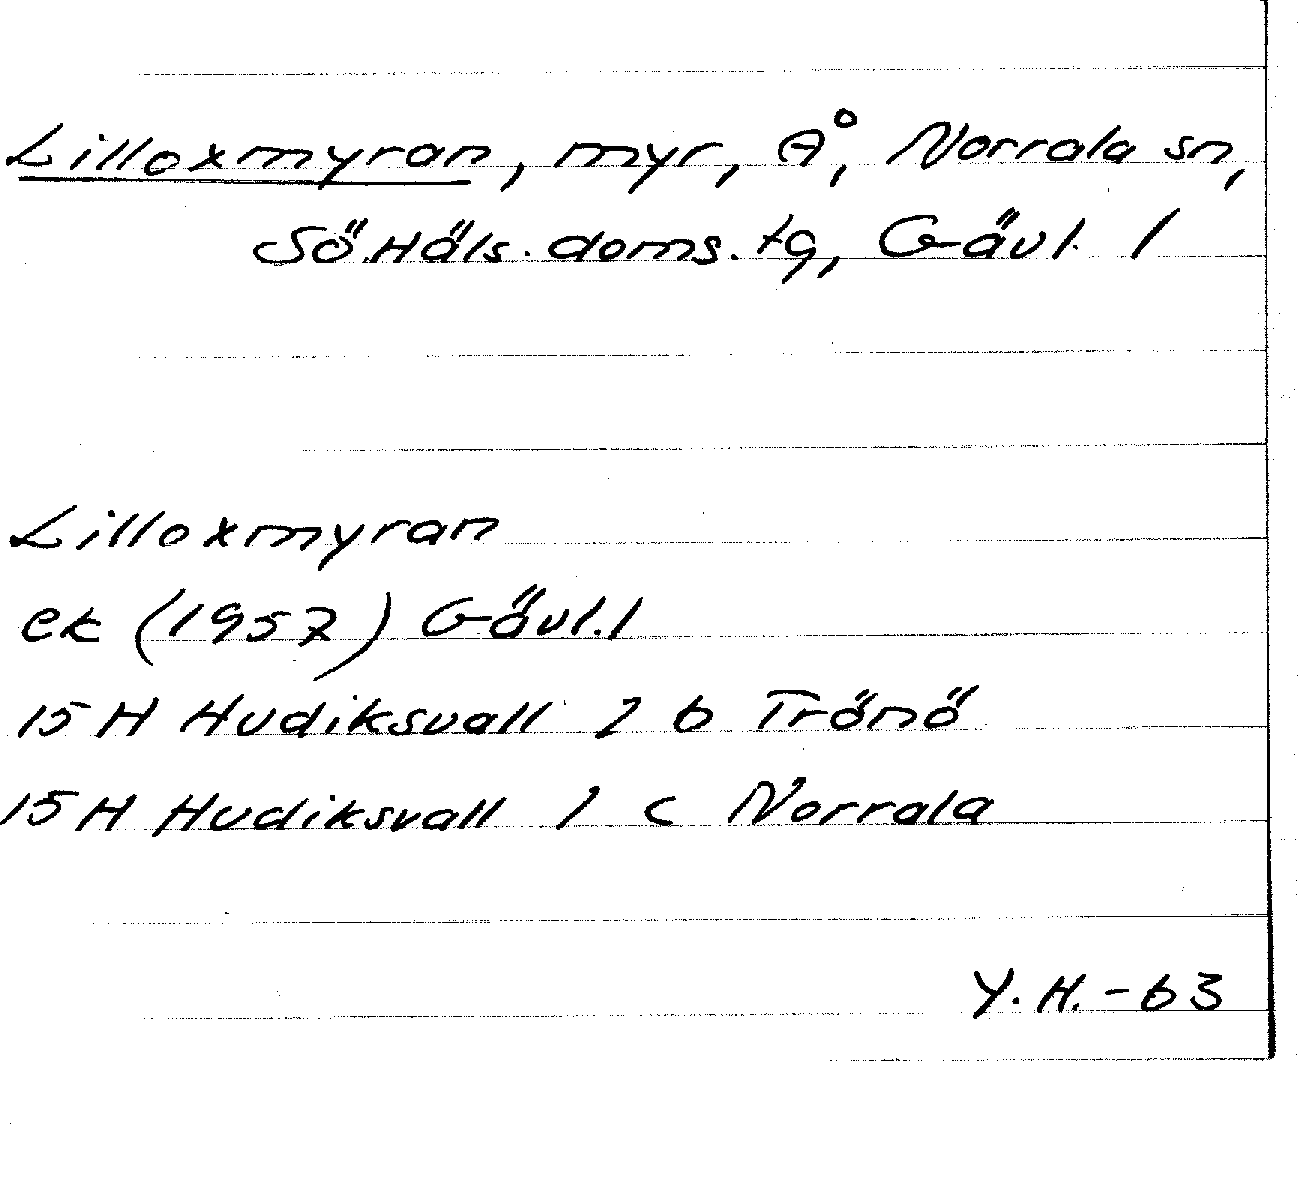 Lilloxmyran, myr, Å, Norrala sn,
Sö.Häls. doms. tg, Gävl. l
Lilloxmyran
ek (1957) Gävl. l
15 H Hudiksvall 1 b Trönö
15 H Hudiksvall 1 c Norrala
Y. H. - 63